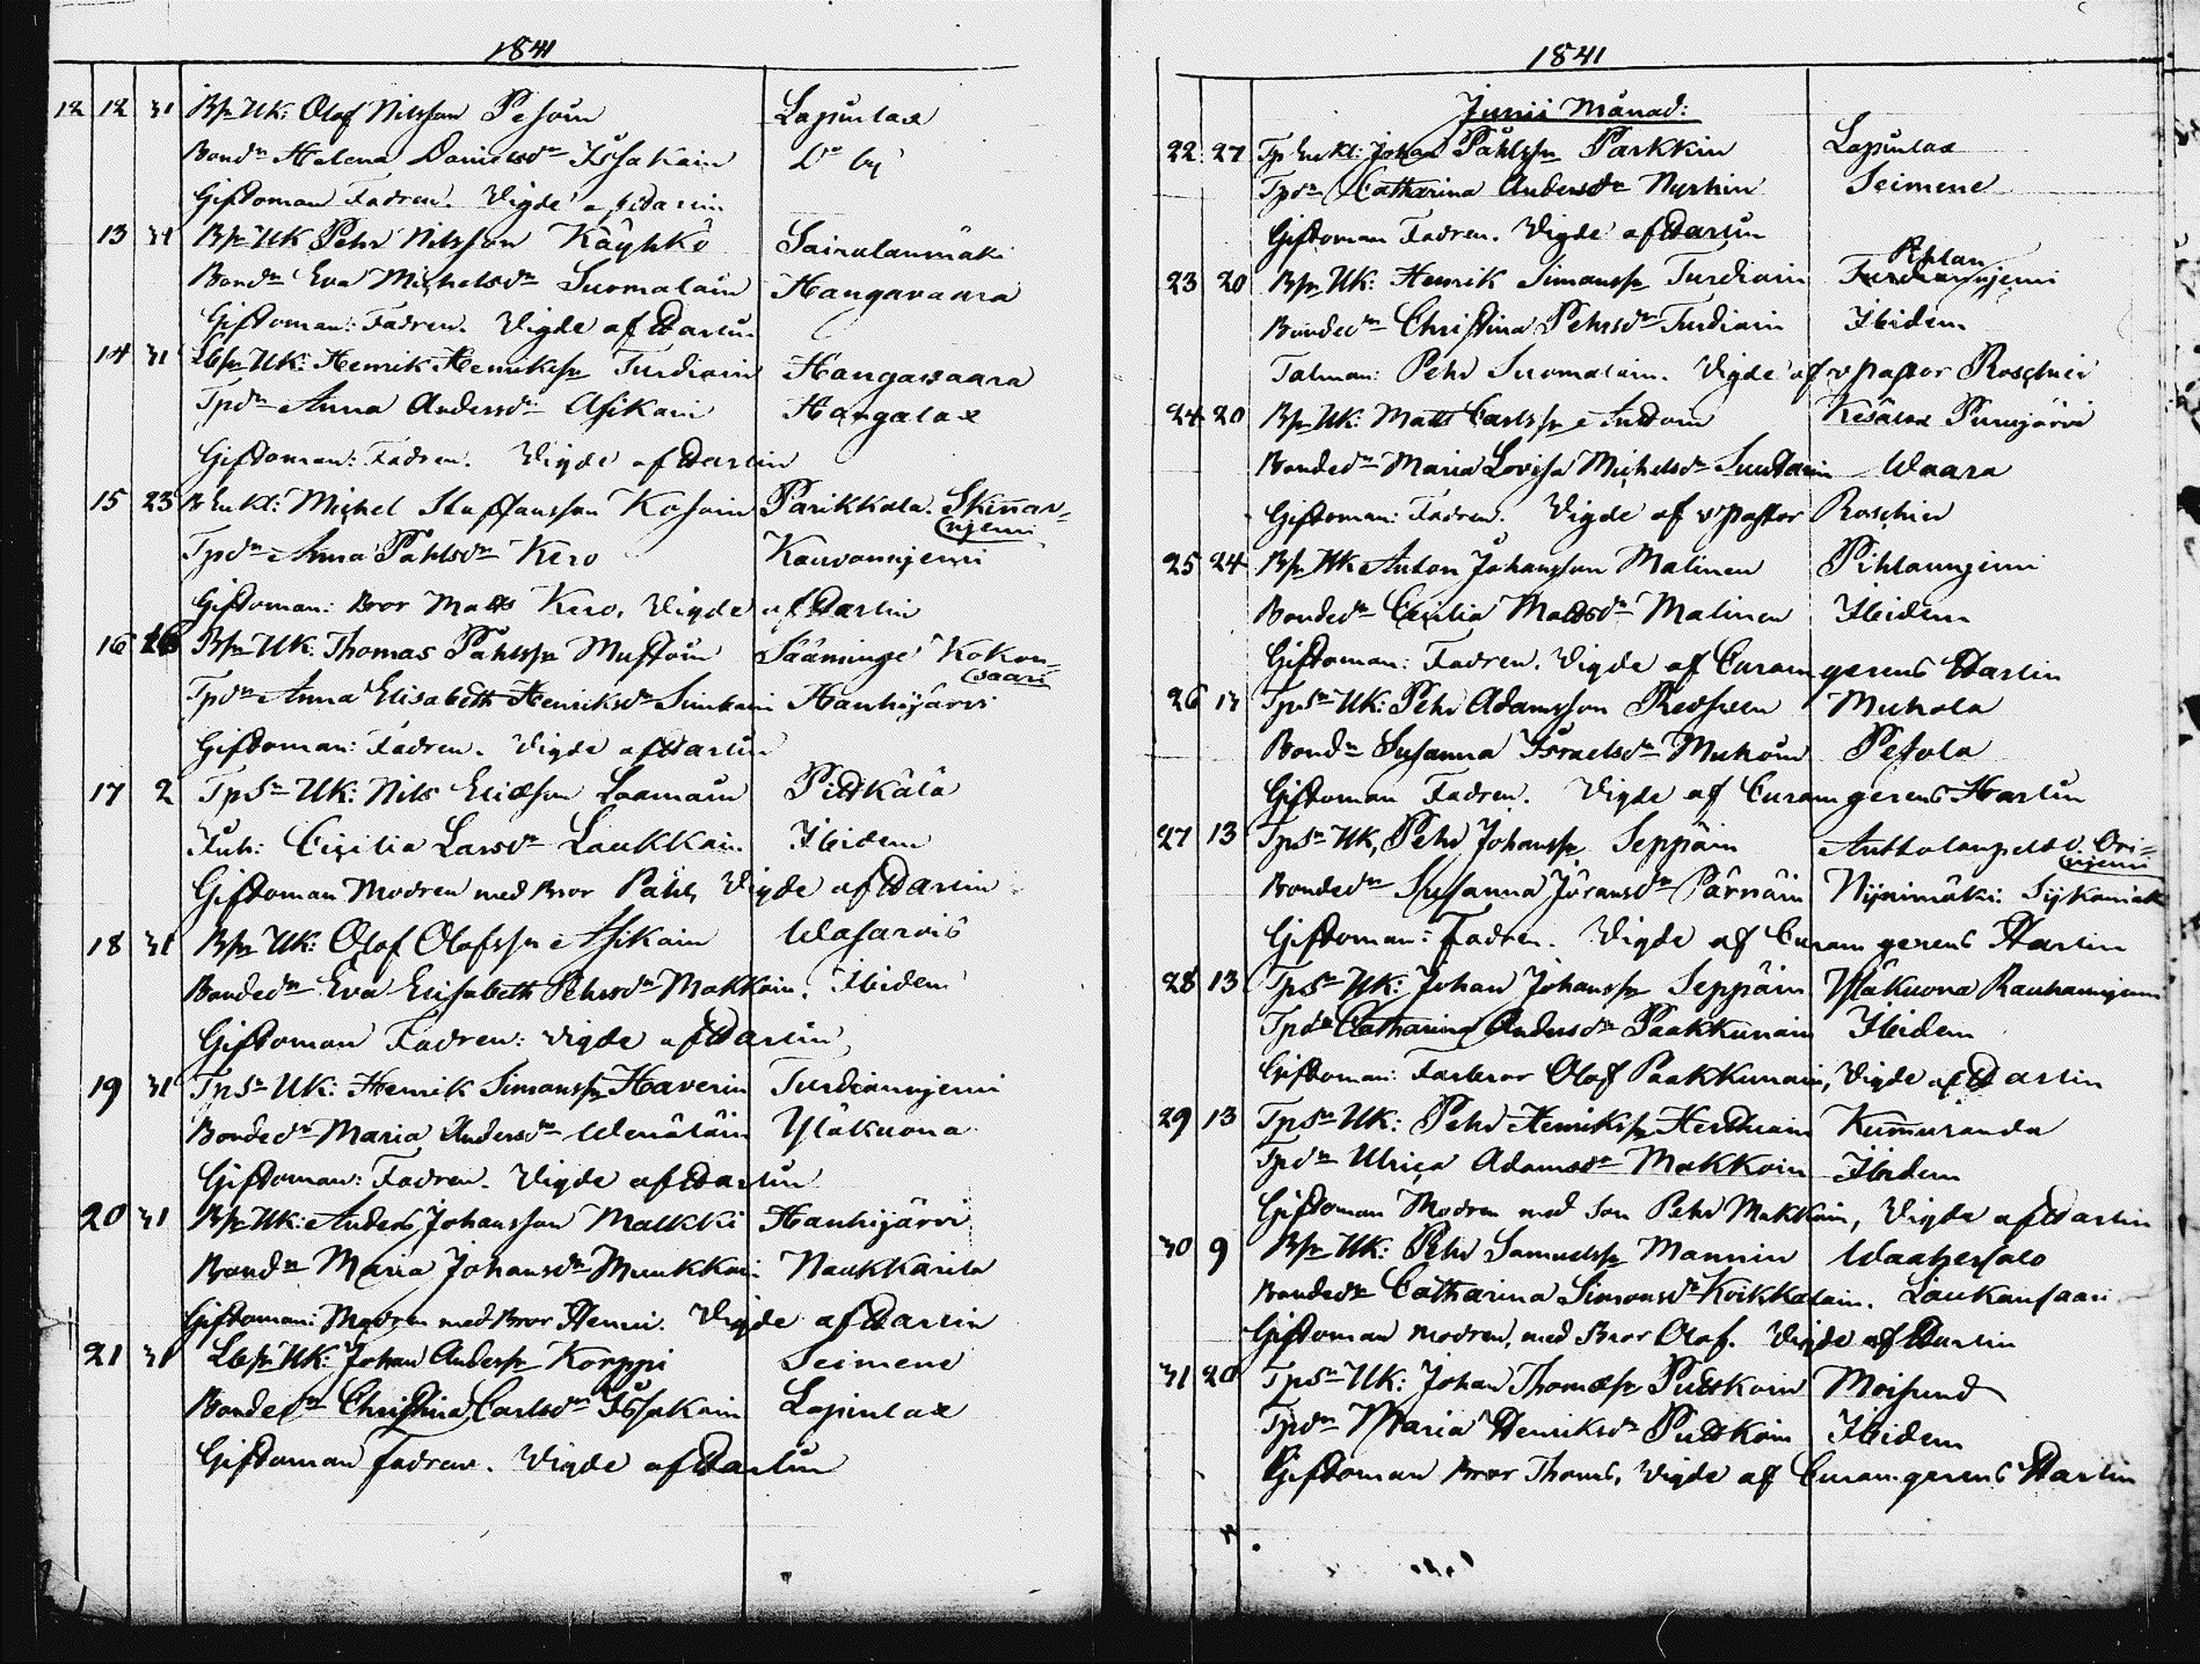 1841
12 12 31 BSn UK: Olof Nilsson Pesoin Lapinlax
Bondn Helena Danielsdn Issakain Do by
Giftoman Fadren. Vigde af Harlin
13 31 BSn UK Pehr Nilsson Käyhkö Sairalanmäki
Bondn Eva Michelsdn Suomalain Hangavaara
Giftoman: Fadren. Vigde af Harlin
14 31 LbSn UK: Henrik Henrikssn Turdiain Hangawaara
Tpdn Anna Andersdn Asikain Hangalax
Giftoman: Fadren. Vigde af Harlin
15 23 B Enkl: Michel Staffansson Kosoin Parikkala. Skinnar-
njemi
Tpdn Anna Påhlsdn Kero Kauvonnjemi
Giftoman: Bror Matts Kero. Vigde af Harlin
16 16 BSn UK: Thomas Påhlssn Mustoin Sääminge Kokon-
saari
Tpdn Anna Elisabeth Henriksdn Sinkain Hanhijärvi
Giftoman: Fadren. Vigde af Harlin
17 2 TpSn UK: Nils Ericsson Laamain Pitkälä
Inh: Cicilia Larsdn Laukkain Ibidem
Giftoman Modren med Bror Påhl, Vigde af Harlin
18 31 BSn UK: Olof Olofssn Asikain
Bondedn Eva Elisabeth Pehrsdn Makkoin. Ibidem
Giftoman Fadren: Vigde af Harlin
19 31 TpSn UK: Henrik Simonssn Haverin Turdiannjemi
Bondedn Maria Andersdn Wenäläin Yläkuona
Giftoman: Fadren. Vigde af Harlin
20 31 BSn UK: Anders Johansson Malkki Hanhijärvi
Bondn Maria Johansdn Muukkain Naukkarila
Giftoman: Modren med Bror Henric. Vigde af Harlin
21 31 LbSn UK: Johan Anderssn Korppi Seimene
Bondedn Christina Carlsdn Issakain Lapinlax
Giftoman Fadren. Vigde af Harlin
1841
Junii Månad:
22 27 Tp Enkl: Johan Påhlssn Parkkin Lapinlax
Tpdn Catharina Andersdn Nyrhin Seimene
Giftoman Fadren. Vigde af Harlin
Pihlan
23 20 BSn UK: Henrik Simonssn Turdiain Turdiannjemi
Bondedn Christina Pehrsdn Turdiain Ibidem
Talman: Pehr Suomalain. Vigde af v Pastor Roschier
24 20 BSn UK: Matts Carlssn Auttoin Kesälax Purujärvi
Bondedn Maria Lovisa Michelsdn Suutarin Waara
Giftoman: Fadren. Vigde af v Pastor Roschier
25 24 BSn UK Anton Johansson Malinen Pihlannjemi
Bondedn Cecilia Mattsdn Malinen Ibidem
Giftoman: Fadren. Vigde af Curam gerens Harlin
26 13 TpSn UK: Pehr Adamsson Redsven Muhola
Bondn Susanna Israelsdn Muhoin Pesola
Giftoman Fadren. Vigde af Curam gerens Harlin
27 13 TpSn UK, Pehr Johanssn Seppäin Anttolanpelto. Ori-
njemi
Bondedn Susanna Jöransdn Pärnäin Nijnimäki:
Giftoman: Fadren. Vigde af Curam gerens Harlin
28 13 TpSn UK: Johan Johanssn Seppäin Yläkuona Rauhannjemi
Tpdn Catharina Andersdn Paakkunain Ibidem
Giftoman: Farbror Olof Paakkunain, Vigde af Harlin
29 13 TpSn UK: Pehr Henrikssn Herttuain Kummuranda
Tpdn Ulrica Adamsdn Makkoin Ibidem
Giftoman Modren med son Pehr Makkoin, Vigde af Harlin
30 9 BSn UK: Pehr Samuelssn Mannin Waahersalo
Bondedn Catharina Simonsdn Koikkalain. Laukansaari
Giftoman modren, med Bror Olof. Vigde af Harlin
31 20 TpSn UK: Johan Thomassn Putkoin Moisund
Tpdn Maria Henriksdn Putkoin Ibidem
Giftoman Bror Thoms, Vigde af Curam gerens Harlin